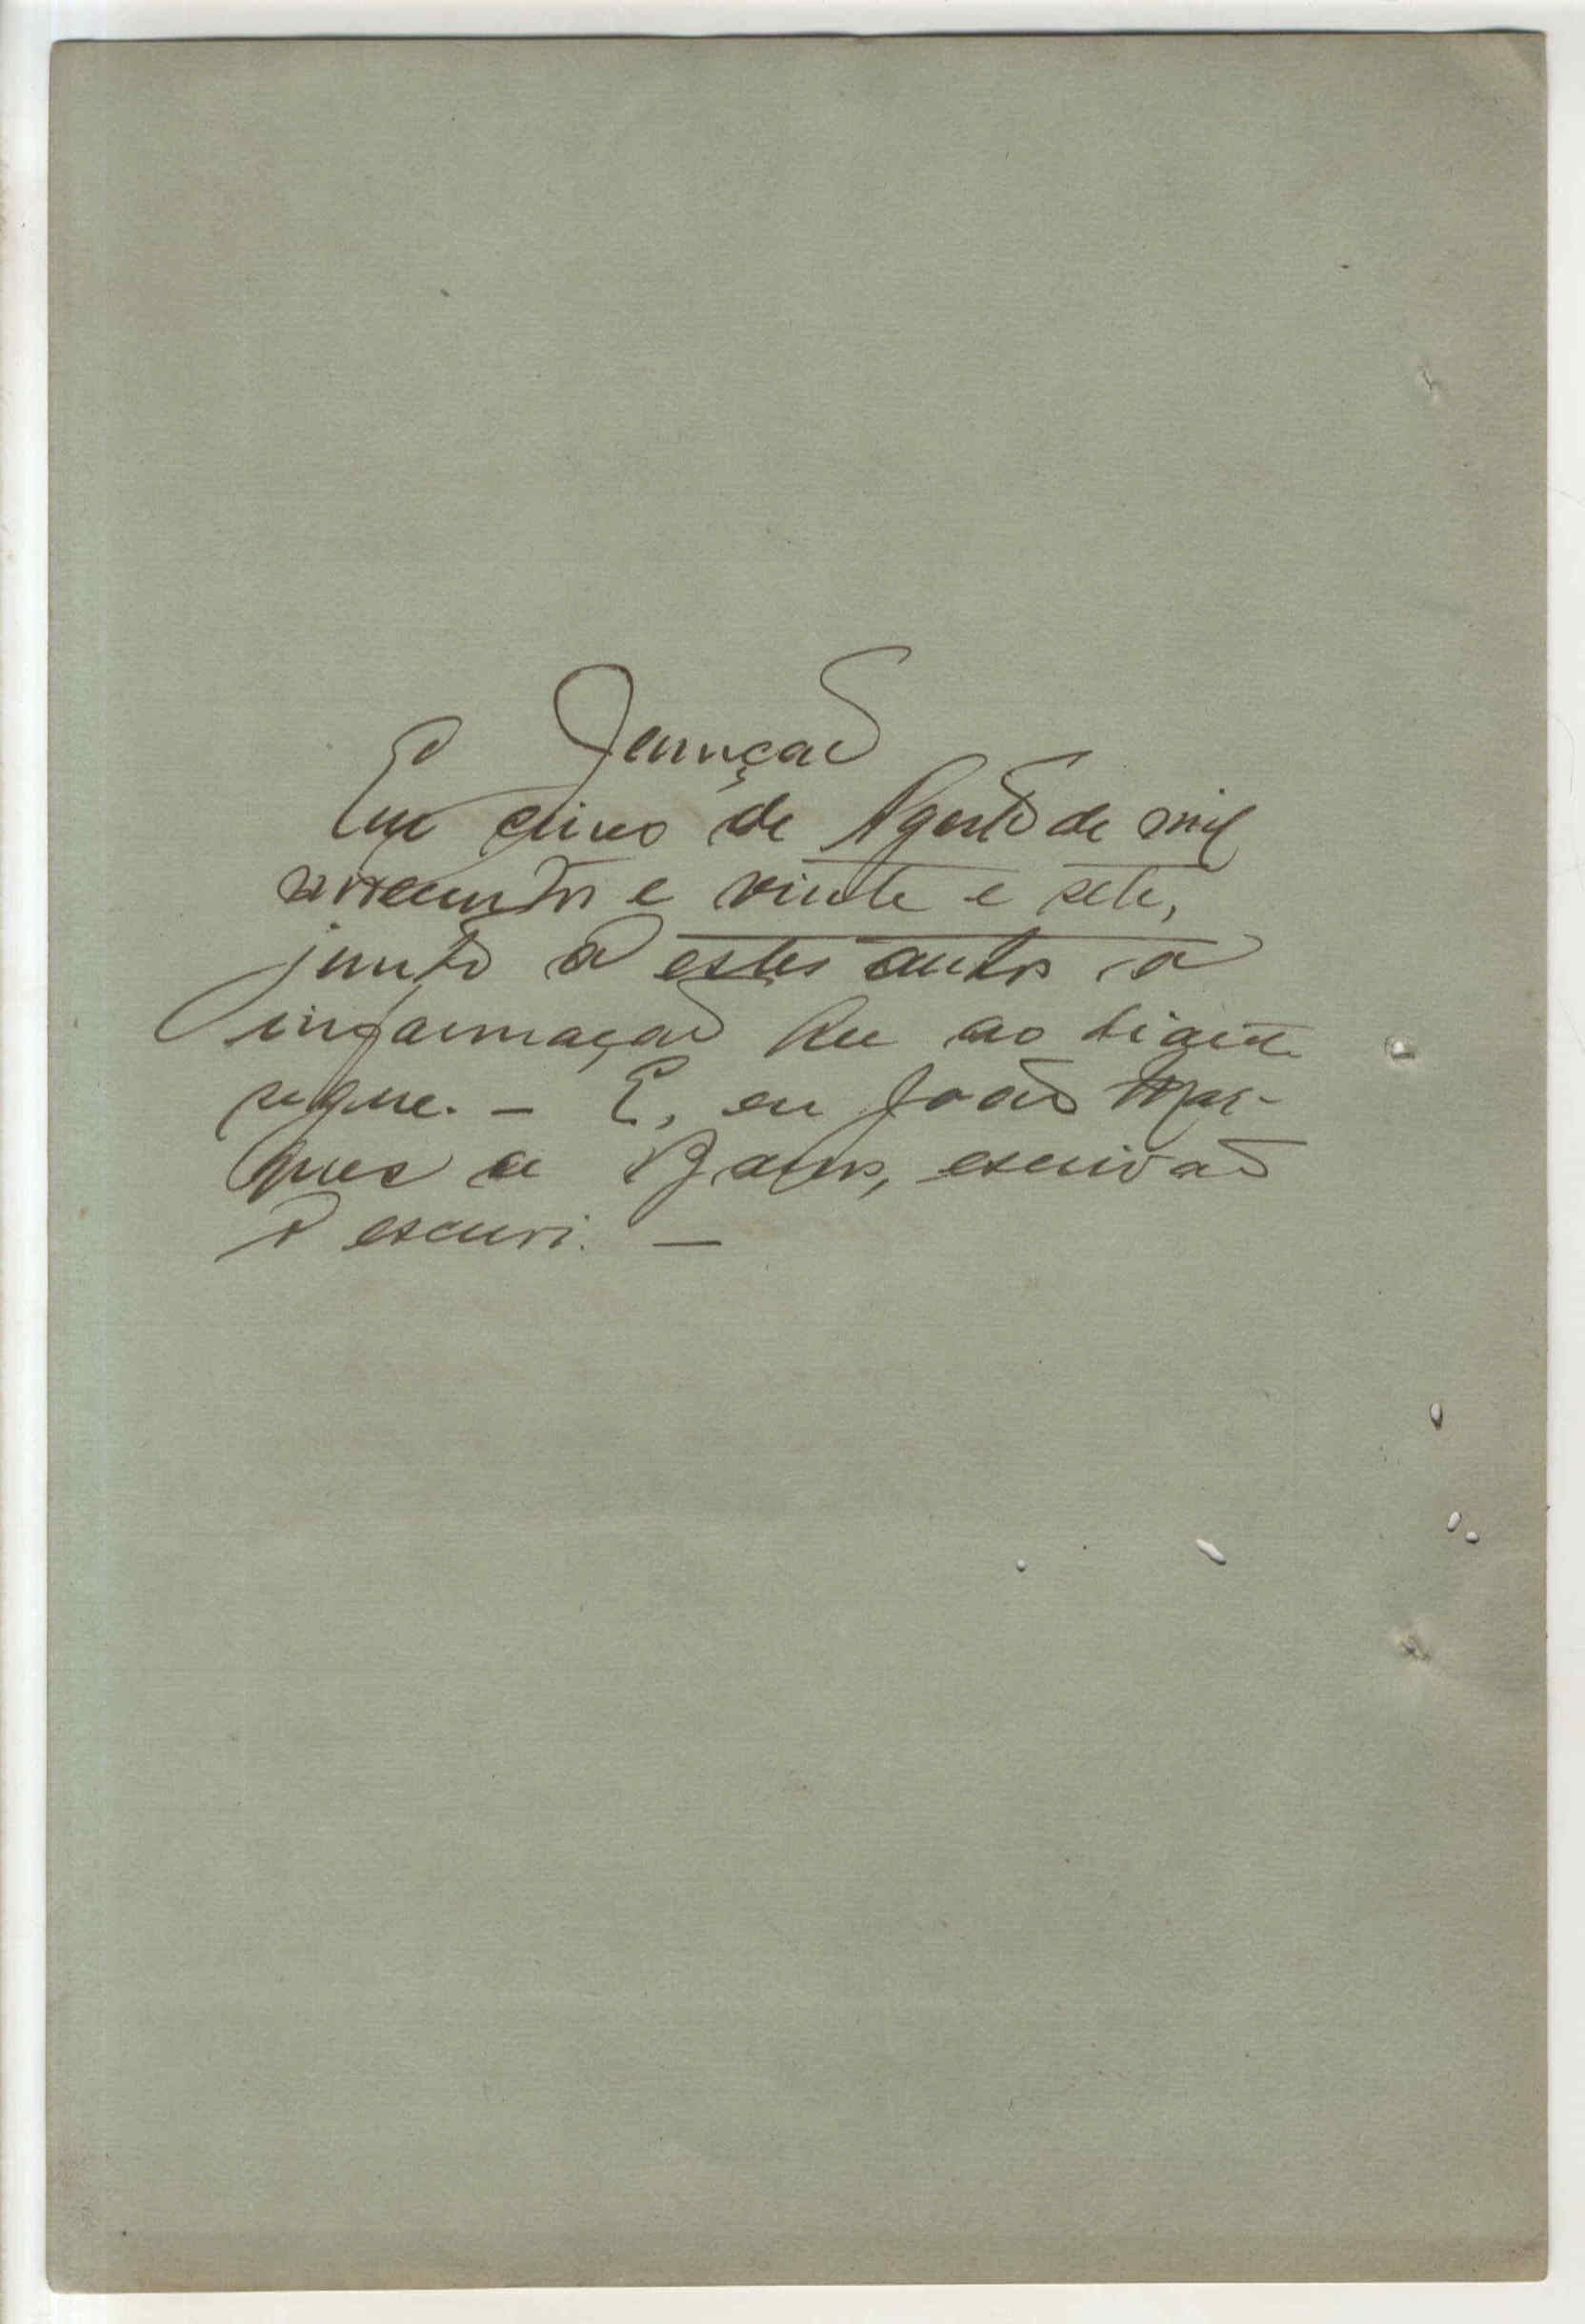 Juncção
Em cinco de Agosto de mil
novecentos e vinte e sete,
junto a estes autos a
informação que ao diante
segue. - E, eu João Mar-
ques de Barros, escrivão
o escrevi. -